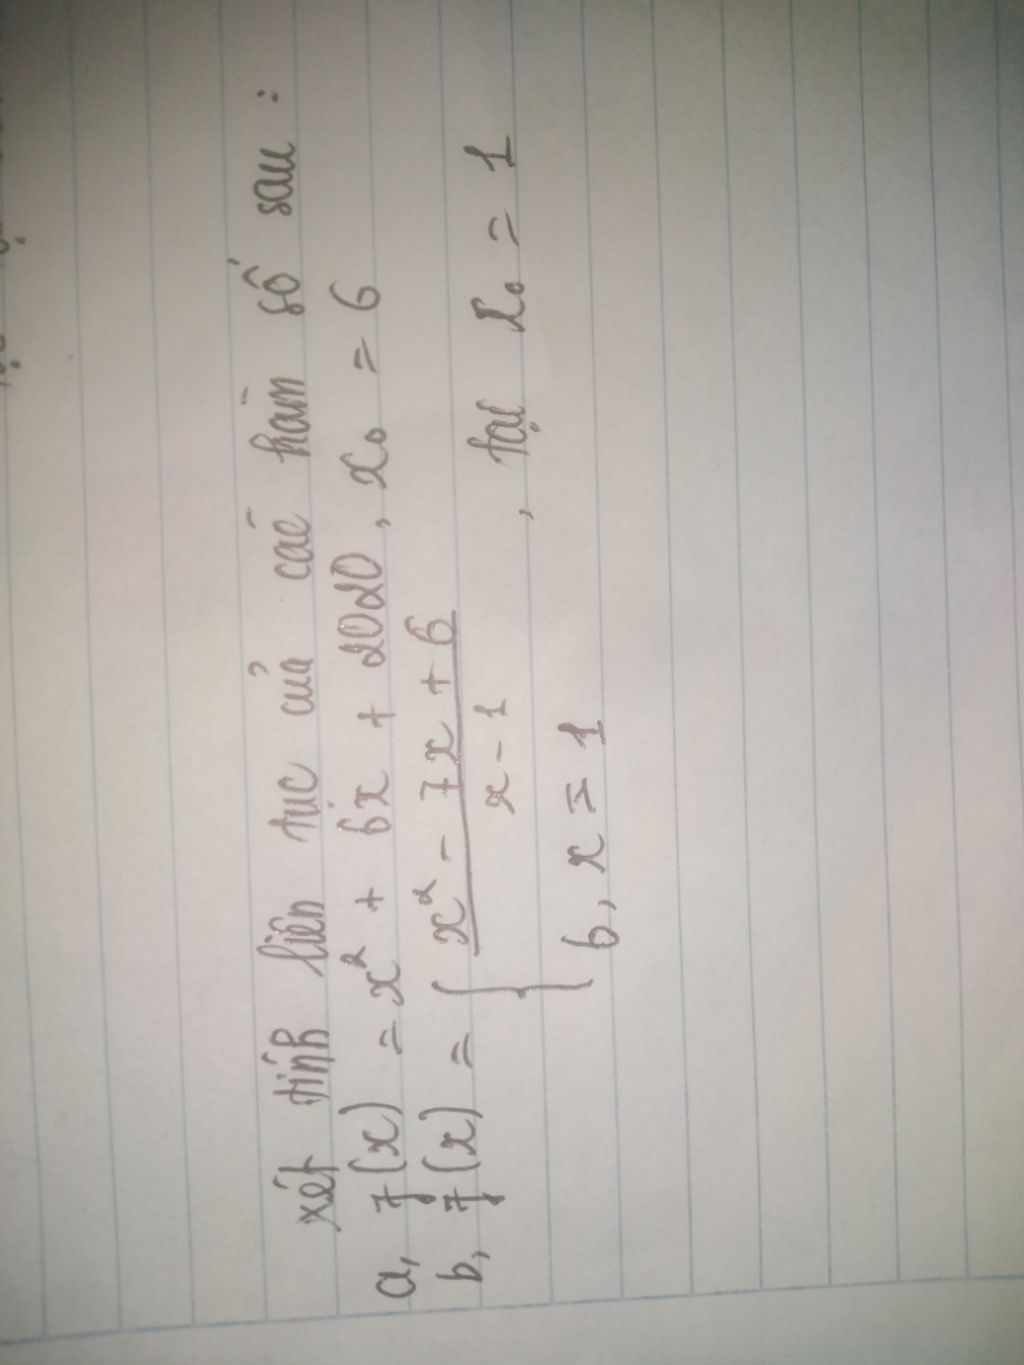 xét tính liên tục của các hàm số sau :
a, f(x) = x² + 6x + 2020, x₀ = 6
b, f(x) = { x² - 7x + 6 / x - 1 , tại x₀ = 1
6, x = 1